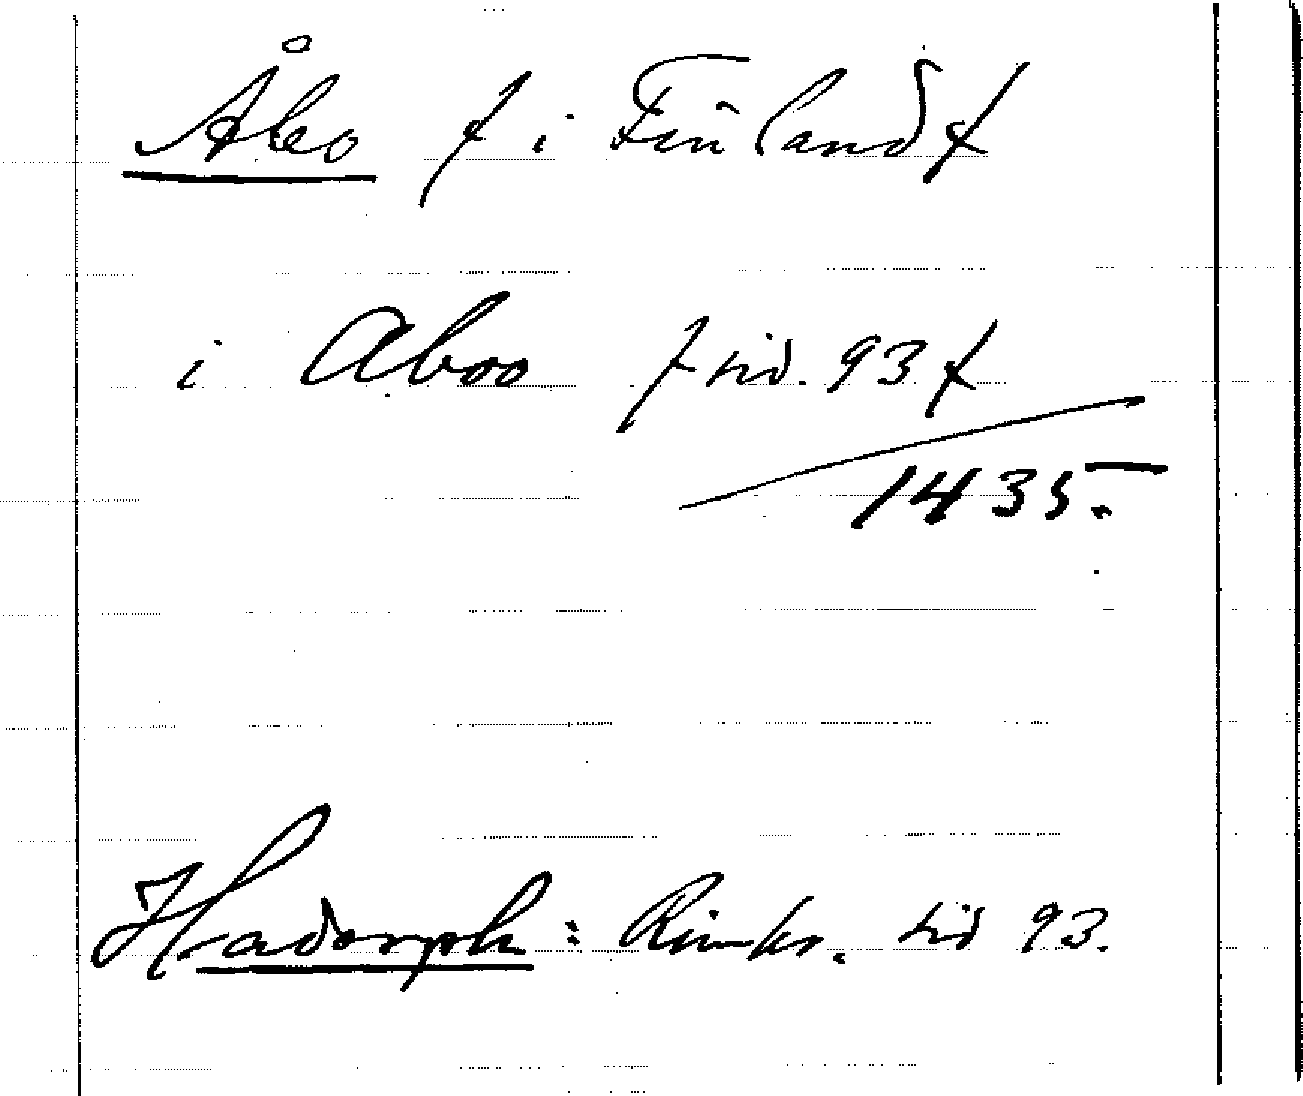 Åbo / i Finland /
i Aboo / sid. 93 /
1435.
Hadorph: Rimkr. sid 93.